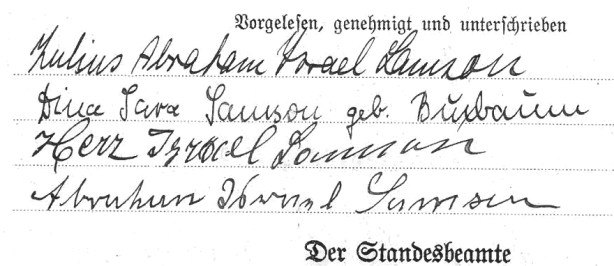 Vorgelesen, genehmigt und unterschrieben
Julius Abraham Israel Samson
Dina Sara Samson geb. Buxbaum
Herz Israel Samson
Abraham Israel Samson
Der Standesbeamte